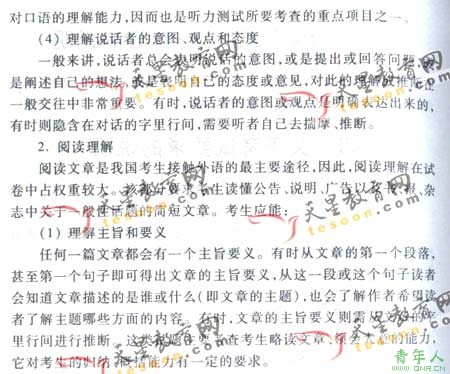 对口语的理解能力,因而也是听力测试所要考查的重点项目之一。
(4) 理解说话者的意图、观点和态度
一般来讲,说话者总会表明说话意图,或是提出或回答问题,或
是阐述自己的想法,或是表明自己的态度或意见,对此的理解或推断在
一般交往中非常重要。有时,说话者的意图或观点是明确表达出来的,
有时则隐含在对话的字里行间,需要听者自己去揣摩、推断。
2. 阅读理解
阅读文章是我国考生接触外语的最主要途径,因此,阅读理解在试
卷中占权重较大。该部分要求考生读懂公告、说明、广告以及书、报、杂
志中关于一般性话题的简短文章。考生应能:
(1) 理解主旨和要义
任何一篇文章都会有一个主旨要义。有时从文章的第一个段落,
甚至第一个句子即可得出文章的主旨要义,从这一段或这个句子读者
会知道文章描述的是谁或什么(即文章的主题),也会了解作者希望读
者了解主题哪些方面的内容。有时,文章的主旨要义则需从文章的字
里行间进行推断。这类试题主要考查考生略读文章、领会大意的能力,
它对考生的归纳、概括能力有一定的要求。
天星教育网
tesoon.com
天星教育网
tesoon.com
天星教育网
tesoon.com
天星教育网
tesoon.com
青年人
www.QNR.CN